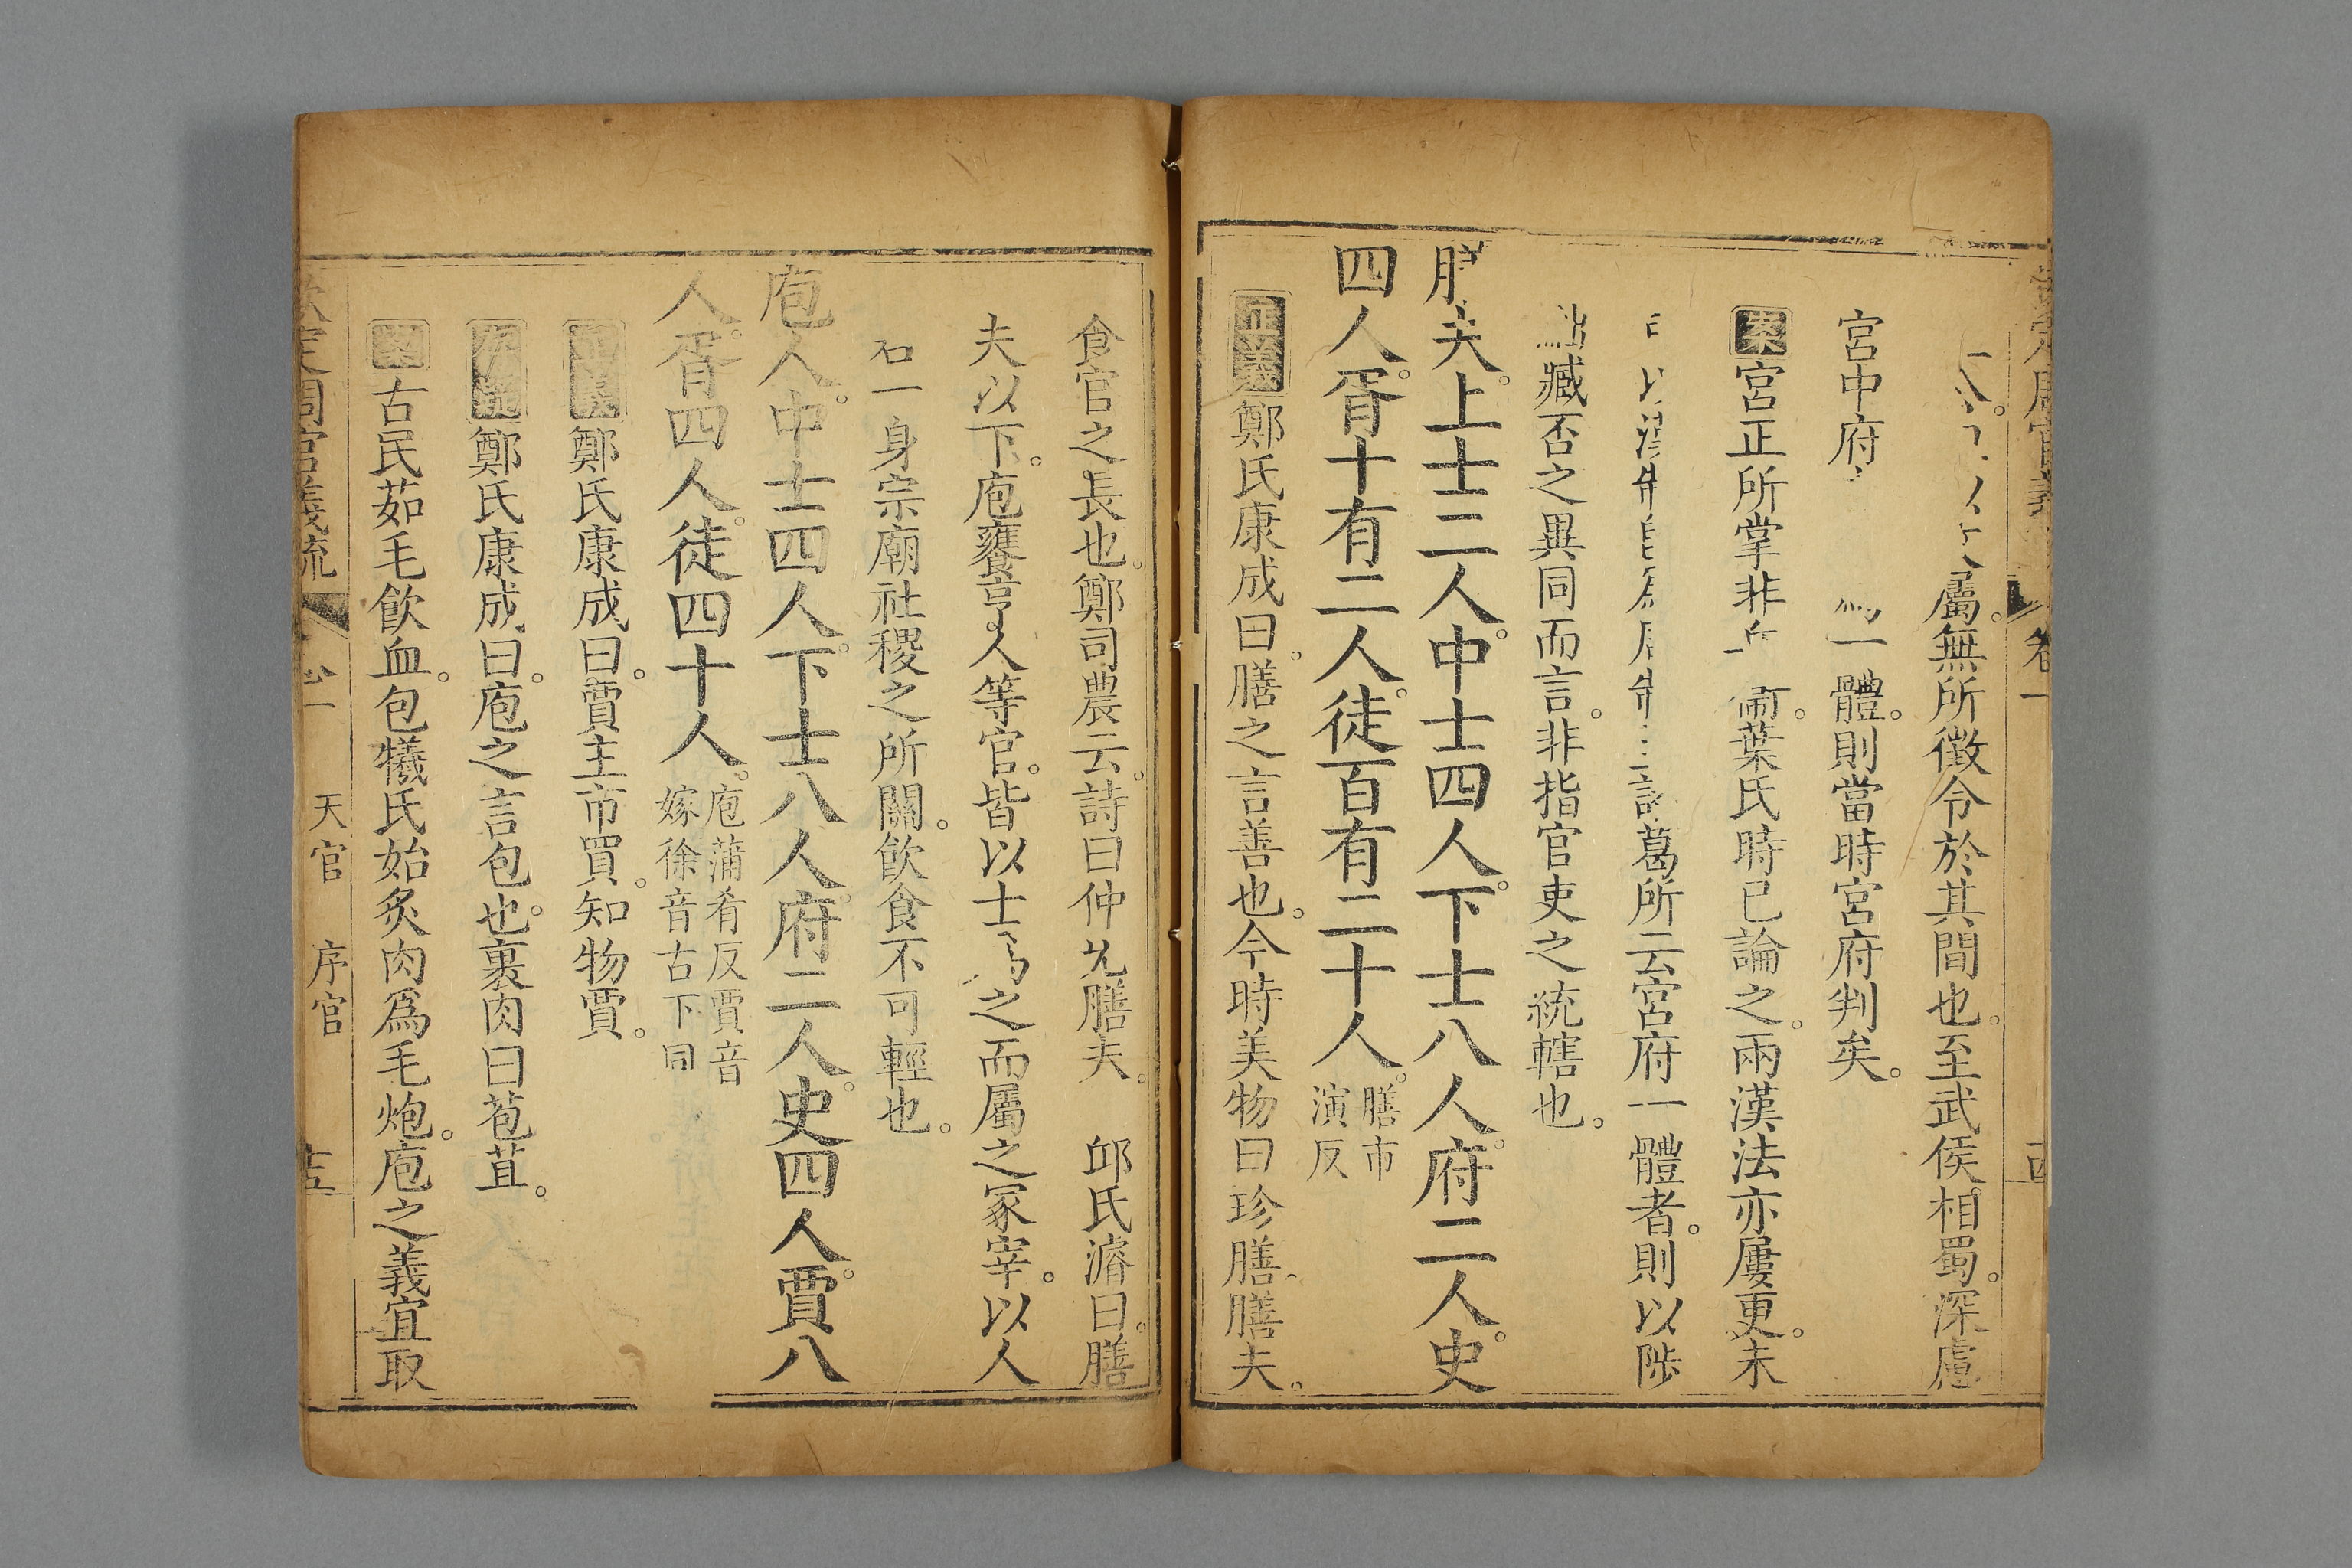 屬無所徵令於其間也至武侯相蜀深慮
宮中府一體則當時宮府判矣
案宮正所掌非葉氏時已論之兩漢法亦屢更未
葛所云宮府一體者則以陟
臧否之異同而言非指官吏之統轄也
膳夫上士二人中士四人下士八人府二人史
四人胥十有二人徒百有二十人膳市演反
正義鄭氏康成曰膳之言善也今時美物曰珍膳膳夫
食官之長也鄭司農云詩曰仲允膳夫 邱氏濬曰膳
夫以下庖饔亨人等官皆以士爲之而屬之冢宰以人
君一身宗廟社稷之所關飲食不可輕也
庖人中士四人下士八人府二人史四人賈八
人胥四人徒四十人庖蒲肴反賈音嫁徐音古下同
正義鄭氏康成曰賈主市買知物賈
存疑鄭氏康成曰庖之言包也裹肉曰苞苴
案古民茹毛飲血包犧氏始炙肉爲毛炮庖之義宜取
欽定周官義疏 卷一 天官 序官